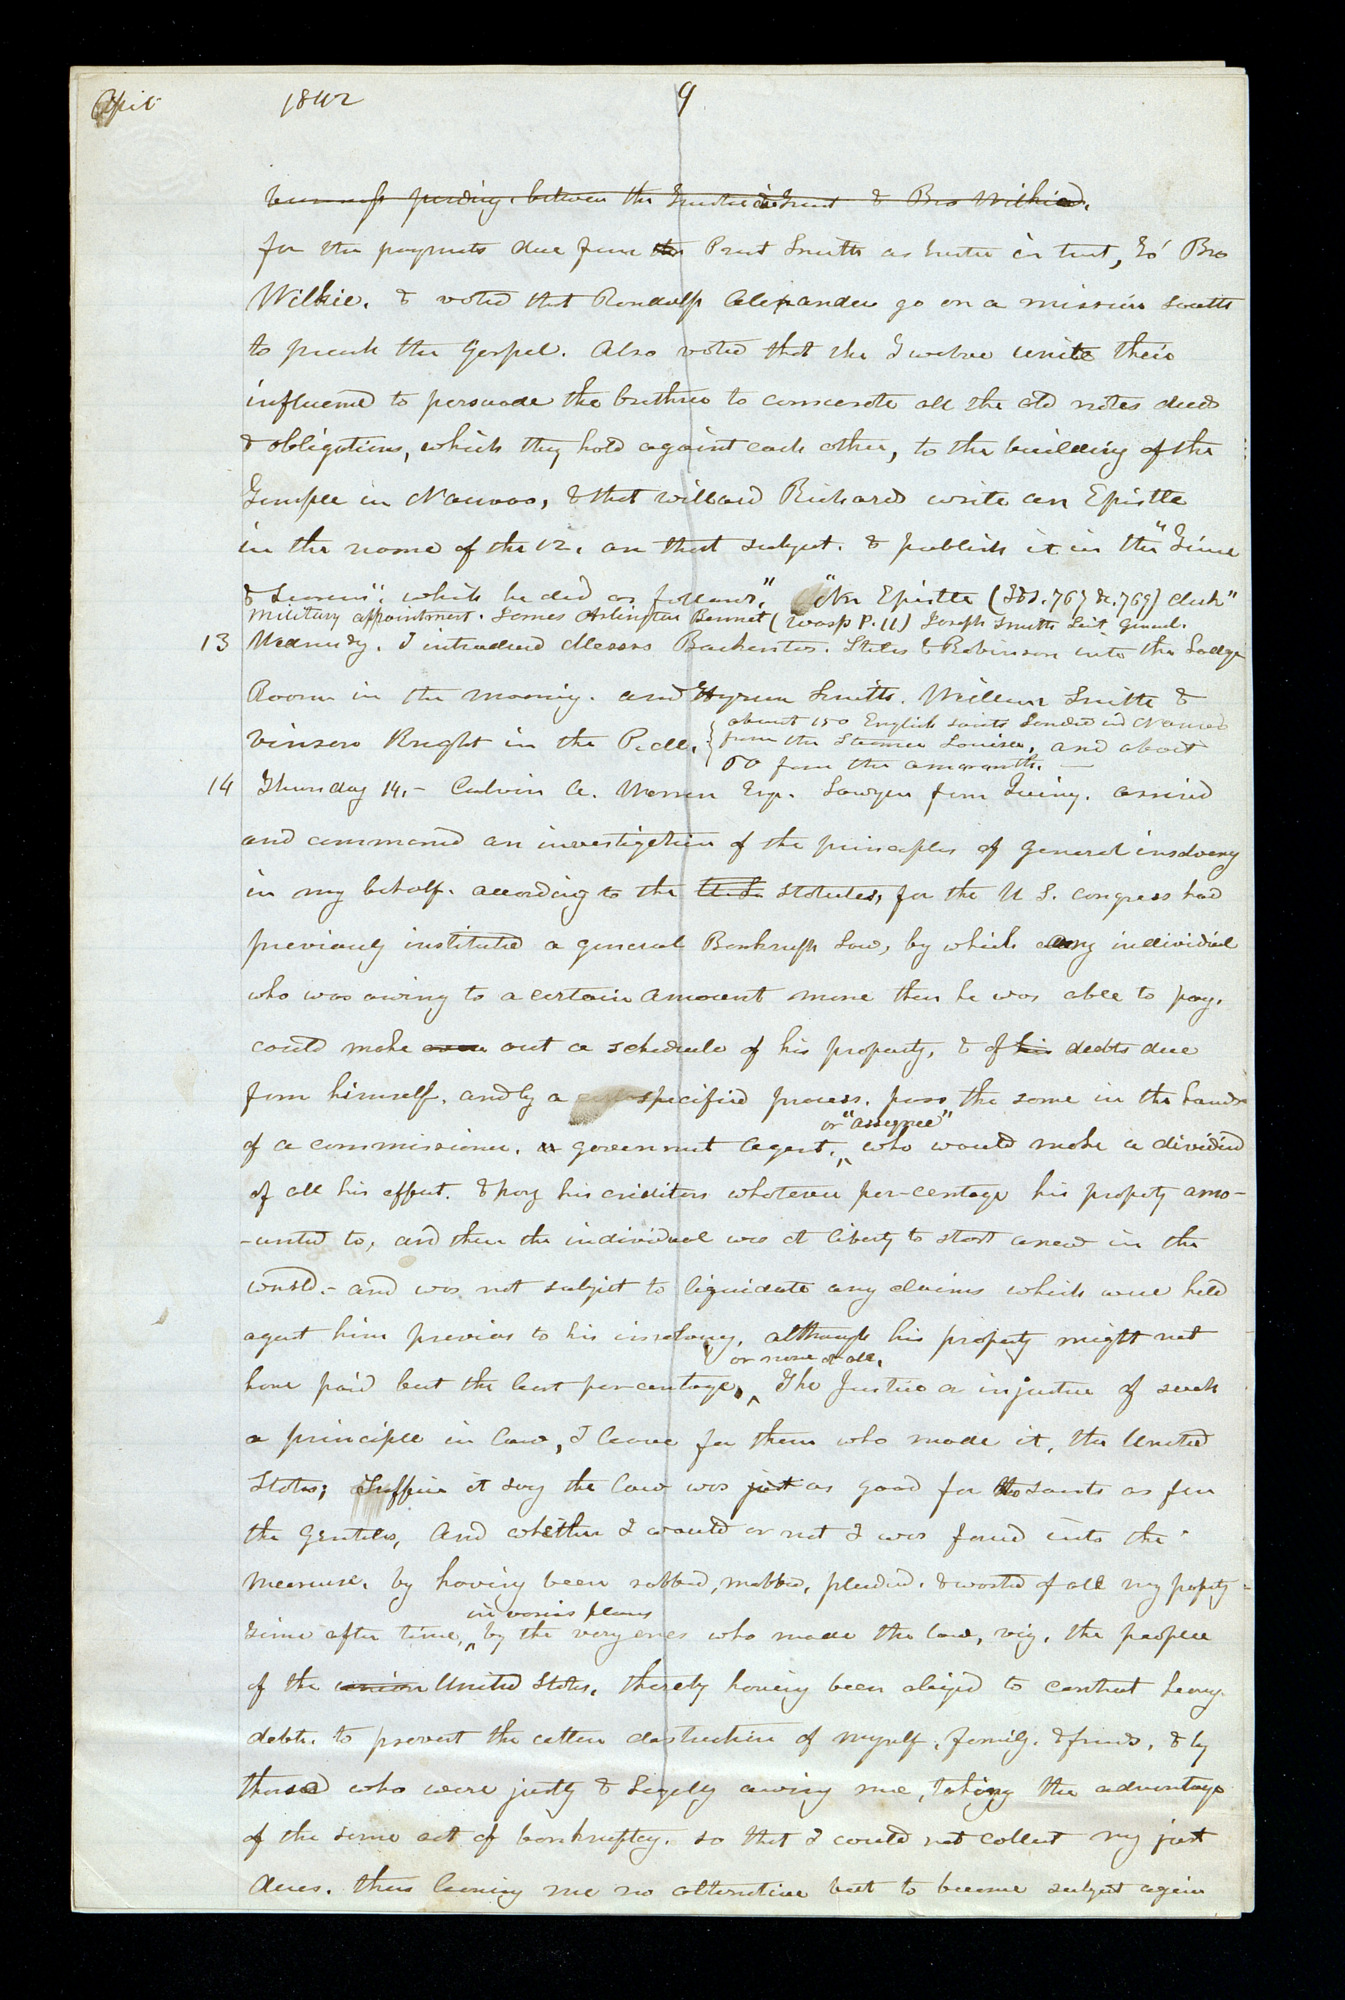 April 1842 9
business pending between the Trustee in Trust & Bro Wilkie.
for the payments due from the Prest Smith as trustee in trust, to Bro
Wilkie. & voted that Randolph Alexander go on a mission south
to preach the Gospel. Also voted that the Twelve unite their
influence to persuade the brethren to consecrate all the old notes deeds
& obligations, which they hold against each other, to the building of the
Temple in Nauvoo, & that Willard Richards write an Epistle
in the name of the 12. on that subject. & publish it in the "Time
& Seasons". which he did as follows," "An Epistle (T&S. 767 &c. 769) Clerk"
military appointment. James Arlington Bennet (Wasp P. 11) Joseph Smith Leit General.
13 Wednesday. I introduced Messrs Backentos. Stiles & Robinson into the Lodge
Room in the morning. and Hyrum Smith. William Smith &
Vinson Knight in the P.M.
about 150 English saints landed in Nauvoo
from the Steamer Louisa, and about
60 from the amaranth. —
14 Thursday 14. – Calvin A. Warren Esqr. Lawyer from Quincy. arrived
and commenced an investigation of the principles of general insolvency
in my behalf. according to the U.S. statutes, for the U S. congress had
previously instituted a general Bankrupt Law, by which any individual
who was owing to a certain amount more than he was able to pay.
could make over out a schedule of his property, & of his debts due
from himself. and by a specified process. pass the same in the hands
of a commissioner. or government Agent. or "assignee" who would make a dividend
of all his effect. & pay his creditors whatever per-centage his property amo-
-unted to, and then the individual was at liberty to start anew in the
world. – and was not subject to liquidate any claims which were held
against him previous to his insolvency, although his property might not
have paid but the least per-centage, or none at all. The Justice or injustice of such
a principle in law, I leave for them who made it, the United
States; Suffice it say the law was just as good for the saints as for
the Gentiles, And whether I would or not I was forced into the
measure. by having been robbed, mobbed, plundered. & wasted of all my property
time after time, in various places by the very ones who made the law, viz. the people
of the union United States, thereby having been obliged to contract heavy
debts. to prevent the utter destruction of myself. family. & friends, & by
those who were justly & Legally owing me, taking the advantage
of the same act of bankruptcy. so that I could not collect my just
dues. thus leaving me no alternative but to become subject again